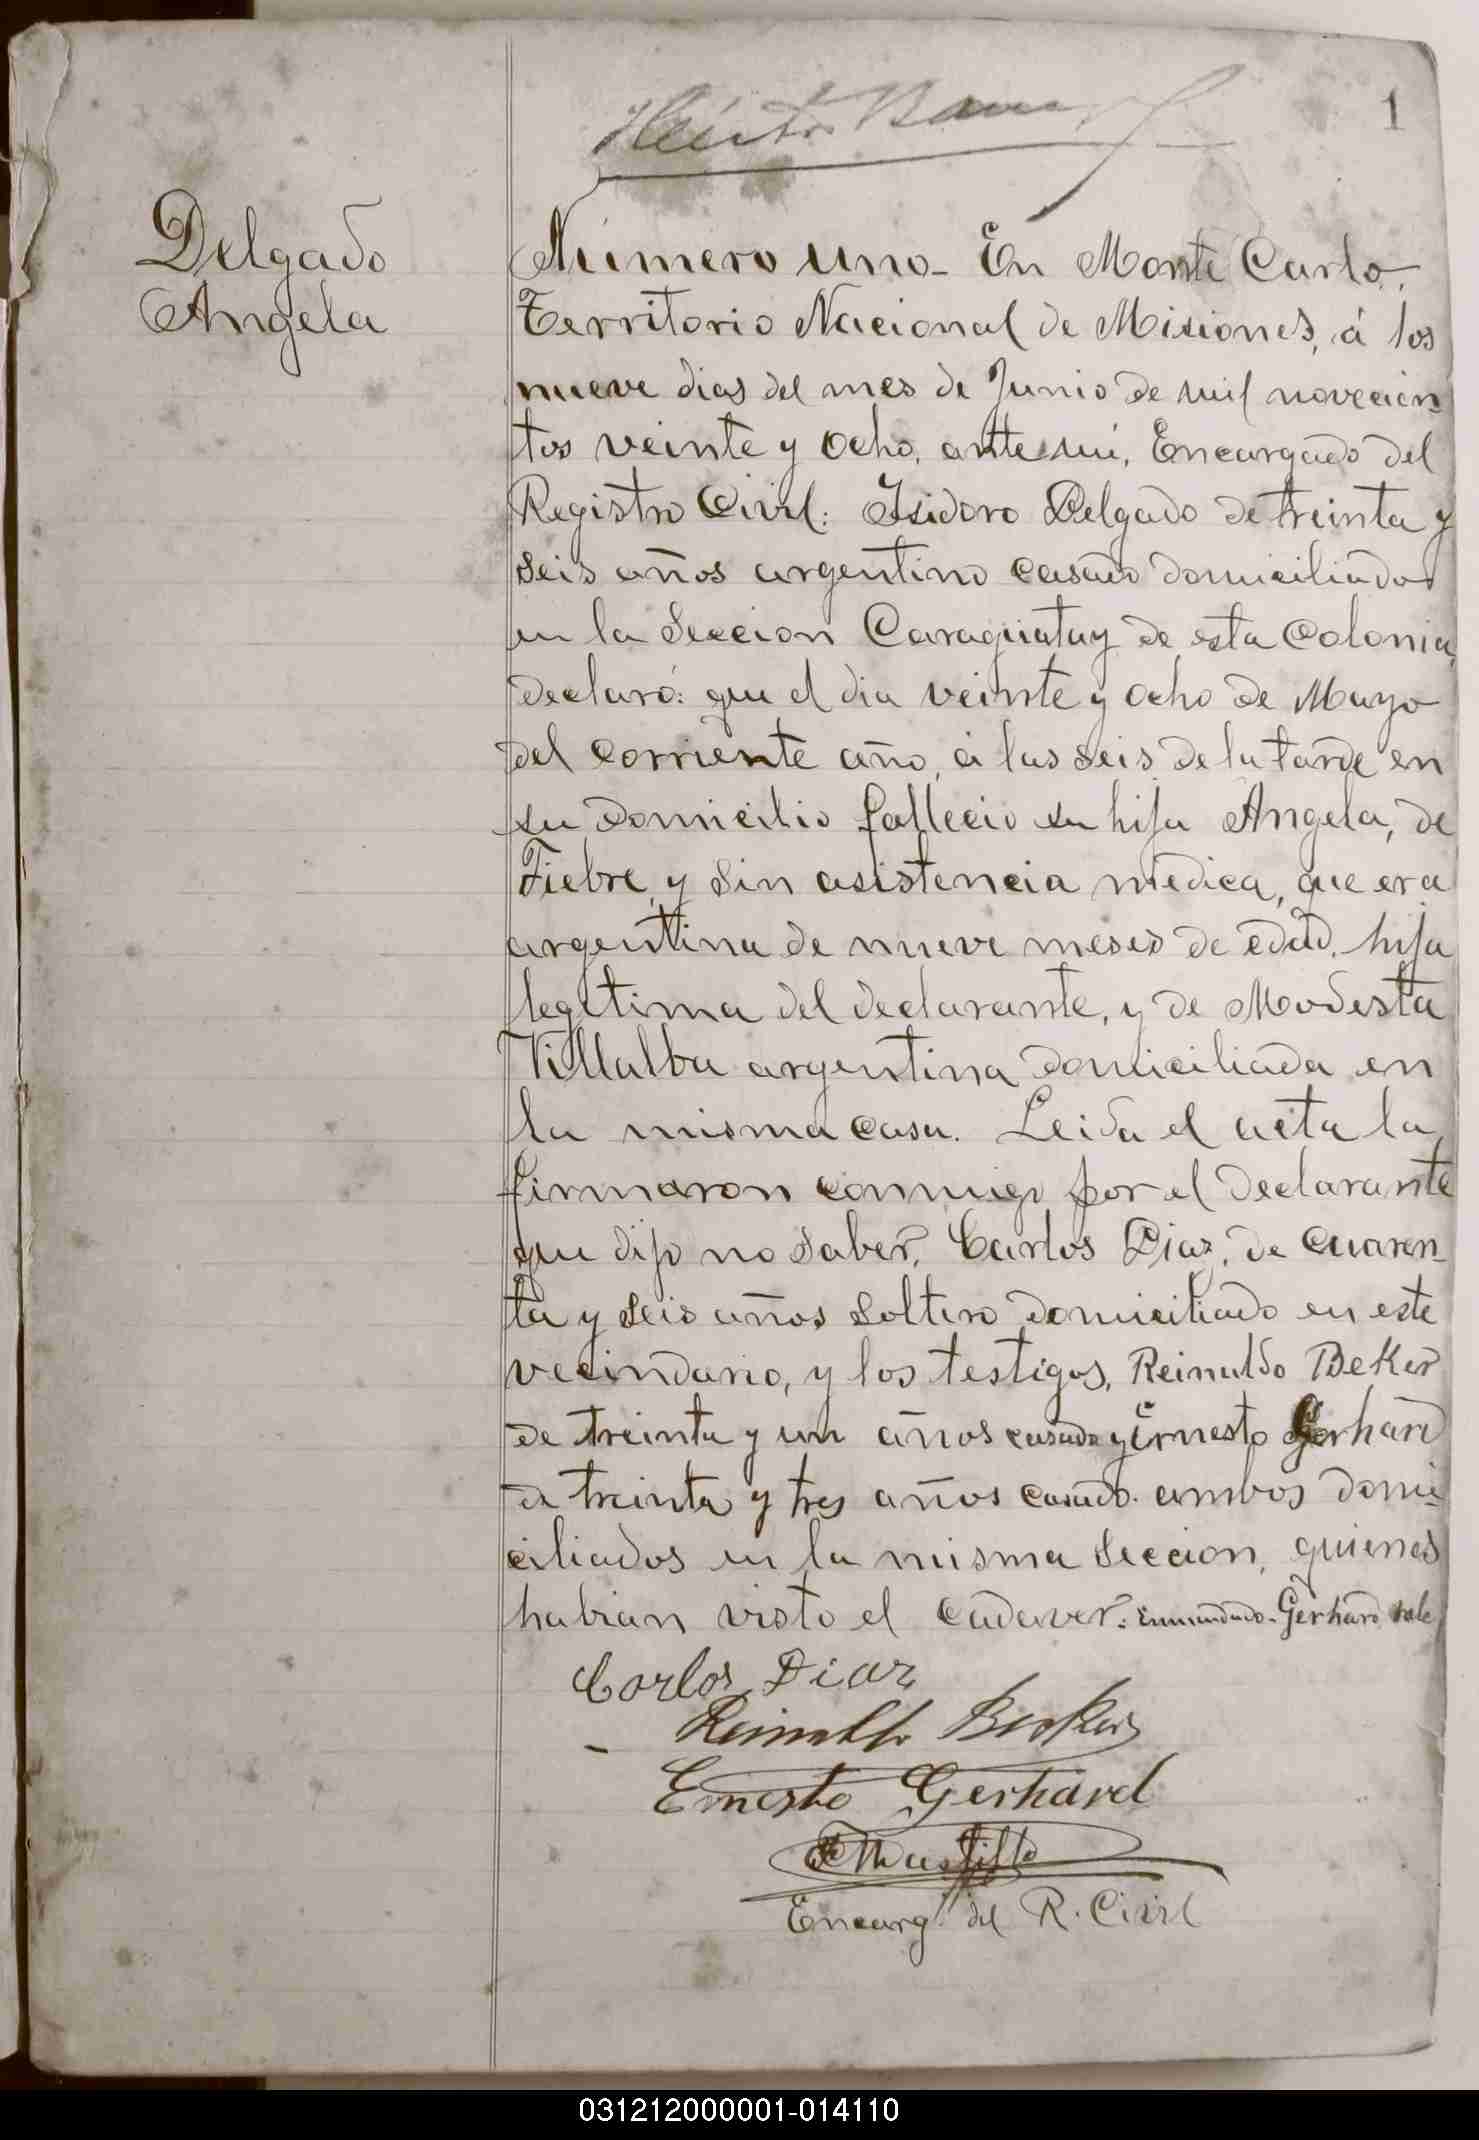 1
Héctor
Delgado
Angela
Número uno - En Monte Carlo,
Territorio Nacional de Misiones, á los
nueve dias del mes de Junio de mil novecien-
tos veinte y ocho, ante mi, Encargado del
Registro Civil: Isidoro Delgado de treinta y
seis años argentino casado domiciliado
en la Seccion Caraguatay de esta Colonia,
declaró: que el dia veinte y ocho de Mayo
del corriente año, á las seis de la tarde en
su domicilio fallecio su hija Angela, de
Fiebre, y sin asistencia medica, que era
argentina de nueve meses de edad, hija
legitima del declarante, y de Modesta
Villalba argentina domiciliada en
la misma casa. Leida el acta la
firmaron conmigo por el declarante
que dijo no saber, Carlos Diaz, de cuaren-
ta y seis años soltero domiciliado en este
vecindario, y los testigos, Reinaldo Beker
de treinta y un años casado y Ernesto Gerhard
de treinta y tres años casado. ambos domi-
ciliados en la misma seccion, quienes
habian visto el cadaver: Enmendado - Gerhard vale
Carlos Diaz
Reinaldo Becker
Ernesto Gerhard
Encarg. del R. Civil
031212000001-014110